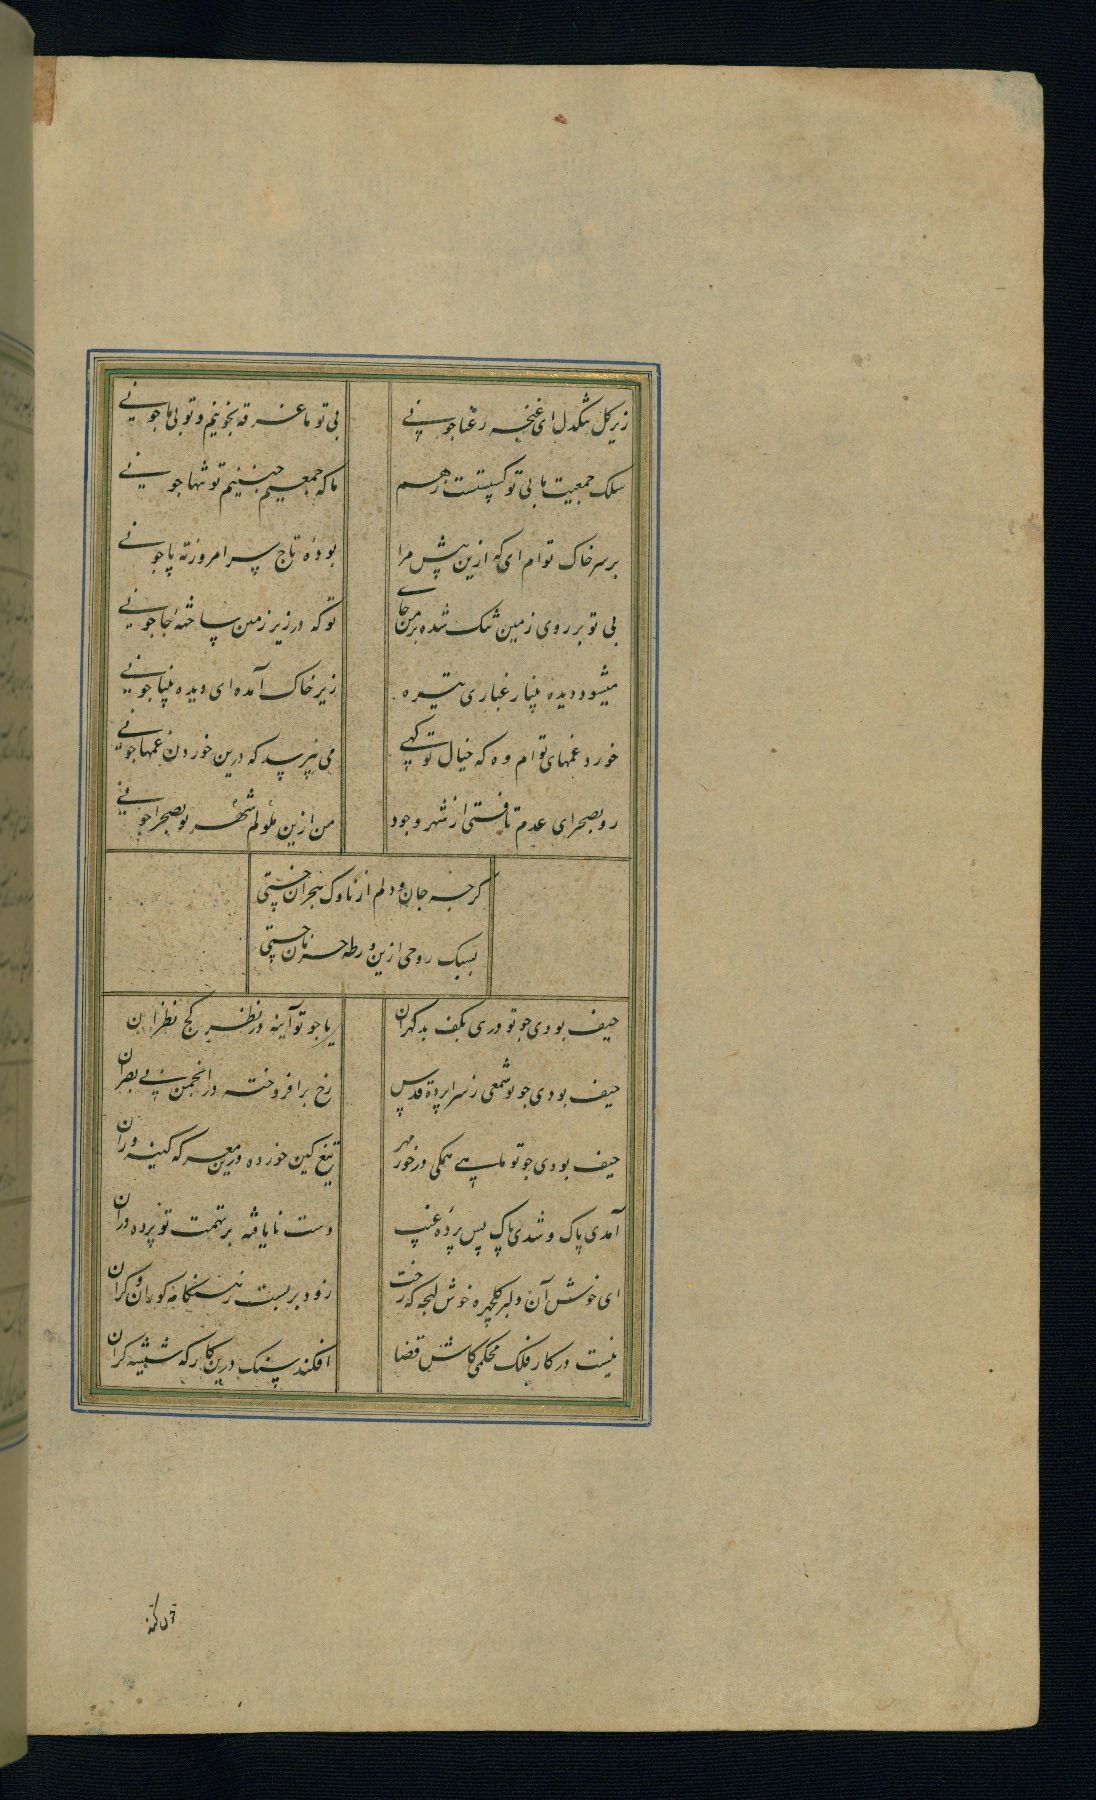 زیر کل تنکدل ای غنچه رعنا جونی بی تو ما غرقه بخونیم و تو بی ما جونی
سلک جمعیت ما بی تو کسستست ز هم ما که جمعیم چنینیم تو تنها جونی
بر سر خاک توام ای که ازین پیش مرا بودهٔ تاج سر امروز ته پا جونی
بی تو بر روی زمین تنک شده بر من جای تو که در زیر زمین ساختهٔ جا جونی
میشود دیده بینا ز غباری تیره زیر خاک آمده ای دیده بینا جونی
خورد غمهای توام وه که خیال تو کهی می نپرسد که درین خوردن غمها جونی
رو بصحرای عدم تافتی از شهر وجود من ازین شهر ملولم تو بصحرا جونی
کرچه جان و دلم از ناوک هجران خستی
بسبک روحی ازین ورطه حرمان جستی
حیف بودی جو تو دری بکف بد کهران یا جو تو آینه در نظر کج نظران
حیف بودی جو تو شمعی ز سراپردهٔ قدس رخ برافروخته در انجمن بی بصران
حیف بودی جو تو ماهی همکی در خور مهر تیغ کین خورده درین معرکه کینه وران
آمدی پاک و شدی پاک پس پردهٔ غیب دست نایافته بر تهمت تو پرده دران
ای خوش آن دلبر کلچهره خوش لهجه که رخت زود بربست ز هنکامه کوران و کران
نیست در کار فلک محکمی کاش قضا افکند سنک درین کارکه شیشه کران